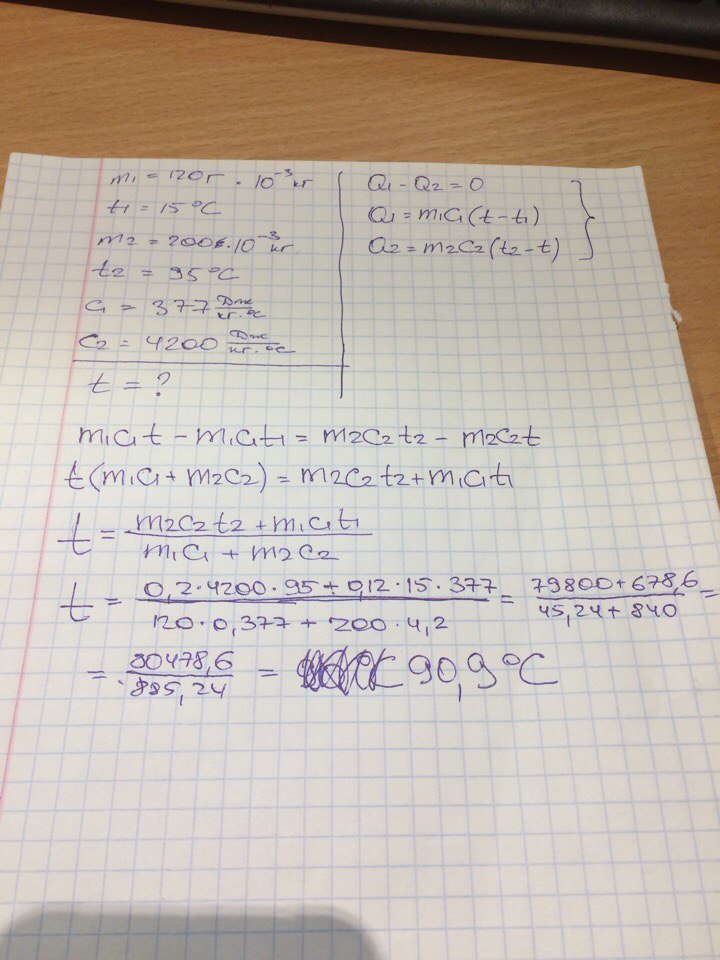 m₁ = 120г · 10⁻³ кг
t₁ = 15 °C
m₂ = 200г · 10⁻³ кг
t₂ = 95 °C
c₁ = 377 Дж/кг·°C
c₂ = 4200 Дж/кг·°C
t = ?
Q₁ - Q₂ = 0
Q₁ = m₁c₁(t - t₁)
Q₂ = m₂c₂(t₂ - t)
m₁c₁t - m₁c₁t₁ = m₂c₂t₂ - m₂c₂t
t(m₁c₁ + m₂c₂) = m₂c₂t₂ + m₁c₁t₁
t = (m₂c₂t₂ + m₁c₁t₁)/(m₁c₁ + m₂c₂)
t = (0,2·4200·95 + 0,12·15·377)/(120·0,377 + 200·4,2) = (79800 + 678,6)/(45,24 + 840) =
= 80478,6/885,24 = 90,9 °C